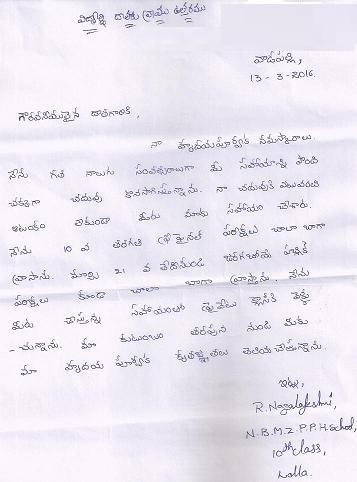 విద్యార్థి దాతకు వ్రాయు ఉత్తరము
వాడపల్లి,
13-3-2016.
గౌరవనీయులైన దాతగారికి,
నా హృదయపూర్వక నమస్కారాలు.
నేను గత నాలుగు సంవత్సరాలుగా మీ సహాయాన్ని పొంది
చక్కగా చదువు కొనసాగిస్తున్నాను. నా చదువుకి ఎటువంటి
ఆటంకం లేకుండా మీరు నాకు సహాయం చేశారు.
నేను 10 వ తరగతి ప్రీఫైనల్ పరీక్షలు చాలా బాగా
వ్రాసాను. మార్చి 21 వ తేదినుండి జరగబోయే పబ్లిక్
పరీక్షలు కూడా చాలా బాగా వ్రాస్తాను. నేను
మీరు చేస్తున్న సహాయంతో ప్రైవేటు క్లాసుకి వెళ్తు
-చున్నాను. మా కుటుంబం తరపున నుండి మీకు
మా హృదయ పూర్వక కృతజ్ఞతలు తెలియచేస్తున్నాను.
ఇట్లు,
R. Nagalakshmi,
N.B.M.Z.P.P.H.School,
10th class,
Lolla.